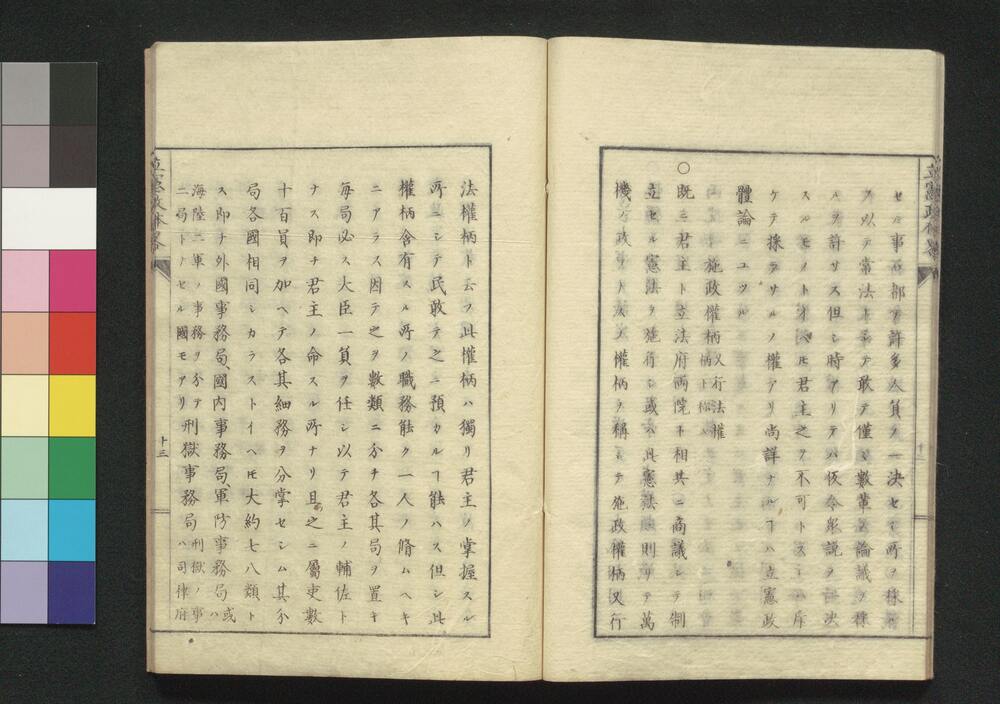 セル事石部下許多人員ノ一決セシ所ヲ採
ヲ以テ常法トシテ敢テ僅々數輩ノ論議ヲ採
ルヲ許サス但シ時アリテハ仮令衆説ヲ決
スルモノトイヘ𪜈君主之ヲ不可トスレハ斥
ケテ採ラサルノ權アリ尚詳ナルヿハ立憲政
體論ニユツル
施政權柄又行法權柄ト称ス
〇既ニ君主ト立法府兩院ト相共ニ商議シテ制
立セル憲法ヲ施行シ或ハ此憲法ニ則リテ萬
機ノ政ヲ行フノ權柄ヲ稱シテ施政權柄又行
法權柄ト云フ此權柄ハ獨リ君主ノ掌握スル
所ニシテ民敢テ之ニ預カルヿ能ハス但シ此
權柄含有スル所ノ職務能ク一人ノ脩ムヘキ
ニアラス因テ之ヲ數類ニ分チ各其局ヲ置キ
每局必ス大臣一員ヲ任シ以テ君主ノ輔佐ト
ナス即チ君主ノ命スル所ナリ且之ニ屬吏數
十百員ヲ加ヘテ各其細務ヲ分掌セシム其分
局各國相同シカラストイヘ𪜈大約七八類ト
ス即チ外國事務局、國内事務局、軍防事務局或ハ
海陸二軍ノ事務ヲ分テ二局トナセル國モアリ刑獄事務局刑獄ノ事ハ司律府
立憲政体畧
十三